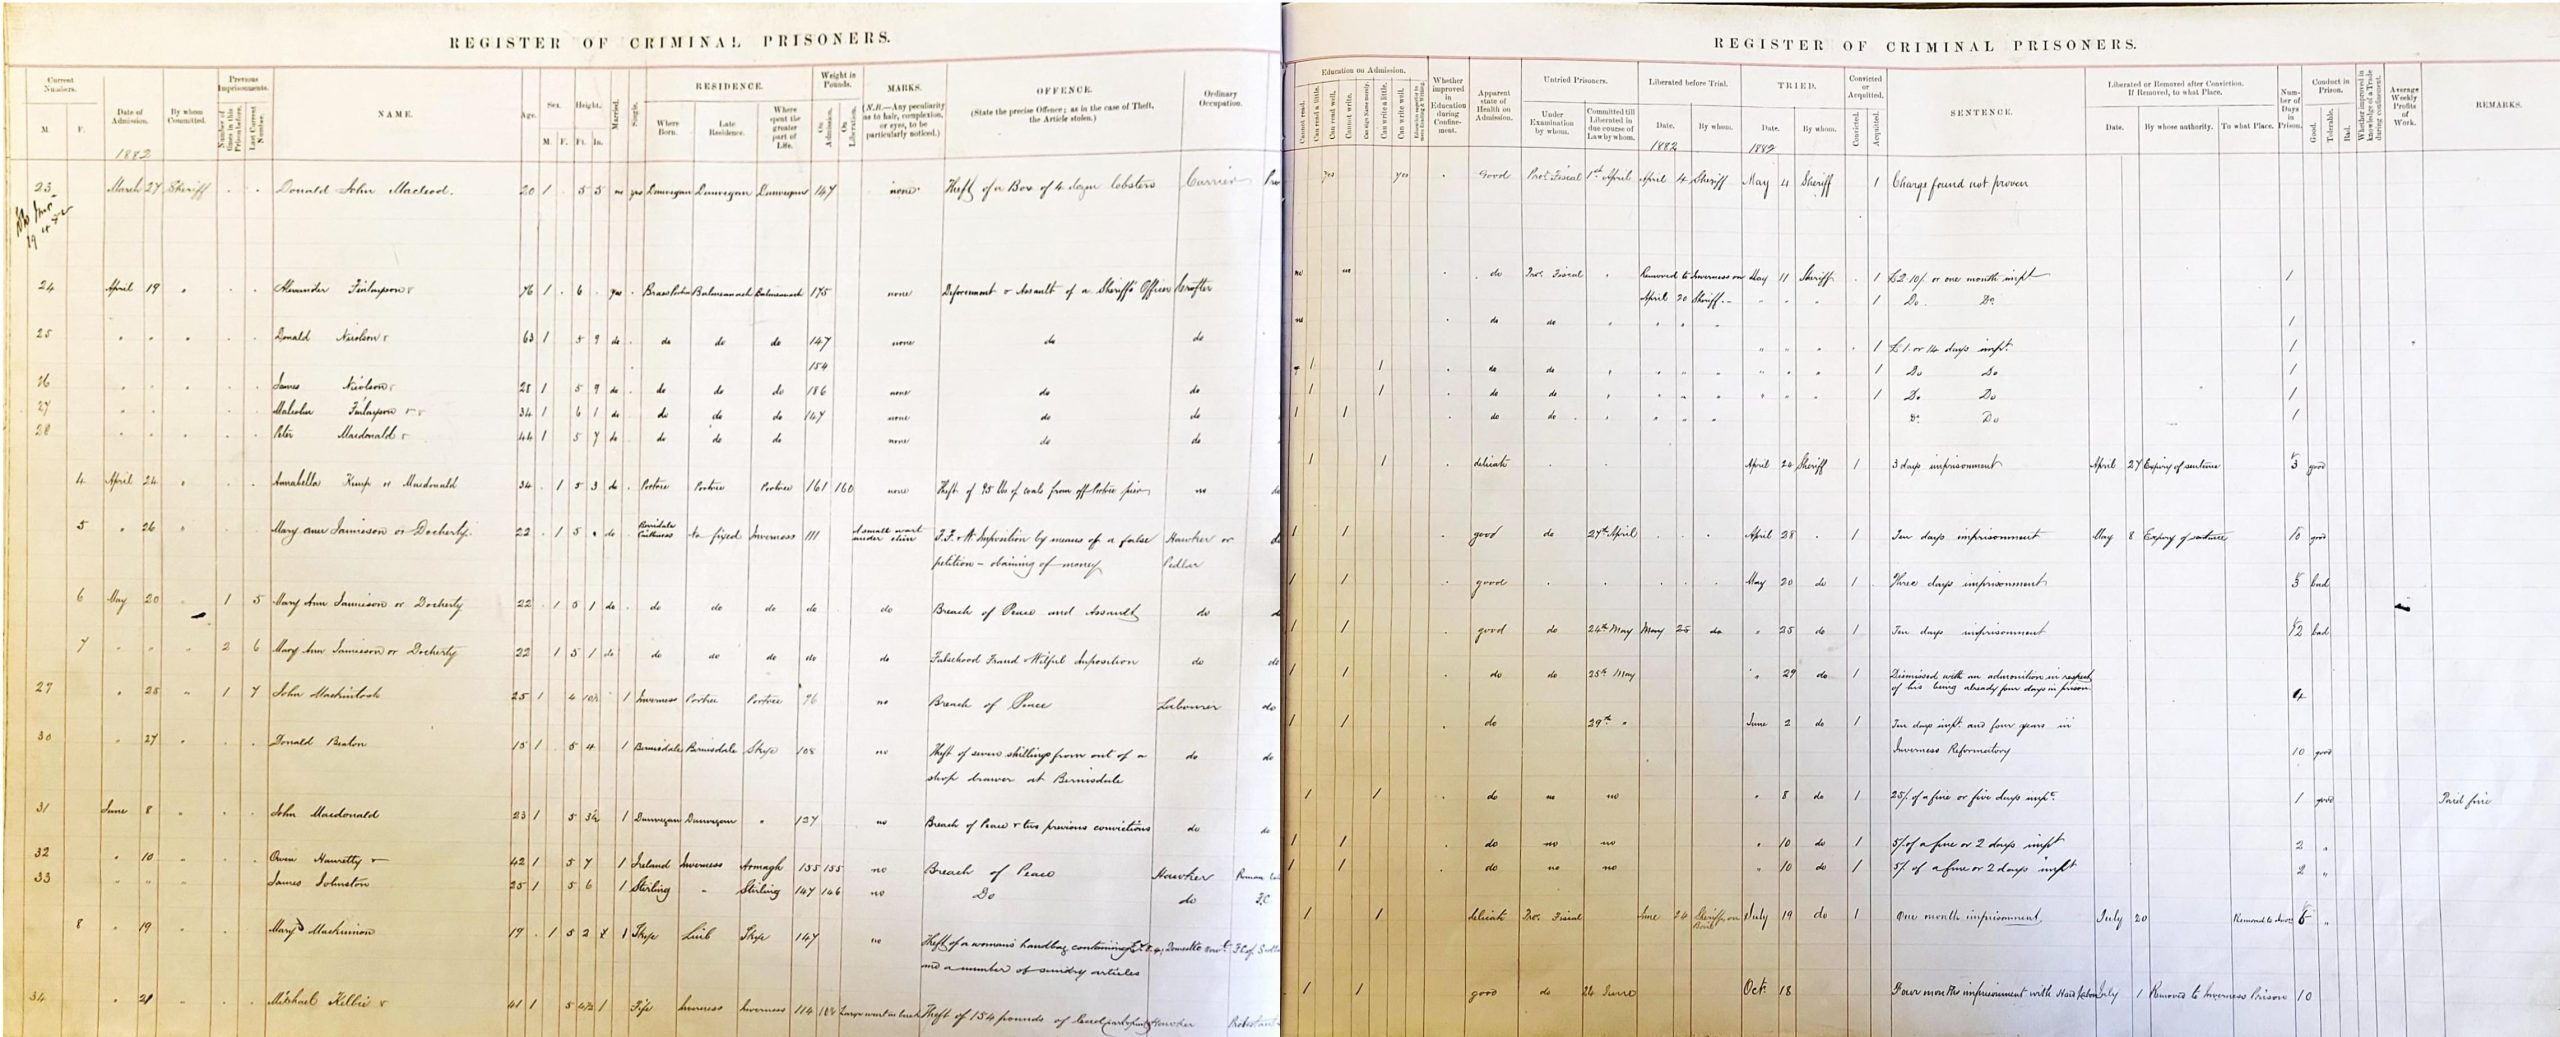 REGISTER OF CRIMINAL PRISONERS.
Current Numbers. M. F. Date of Admission. By whom Committed. Previous Imprisonments. Number of times in this Prison before. Last Current Number. NAME. Age. Sex. M. F. Height. Ft. In. Married. Single. RESIDENCE. Where Born. Late Residence. Where spent the greater part of Life. Weight in Pounds. On Admission. On Liberation. MARKS. (N.B.—Any peculiarity as to hair, complexion, or eyes, to be particularly noticed.) OFFENCE. (State the precise Offence; as in the case of Theft, the Article stolen.) Ordinary Occupation.
1882
23 March 27 Sheriff Donald John Macleod. 20 1 5 5 no yes Dunvegan Dunvegan Dunvegan 147 none Theft of a Box of 4 dozen lobsters Carrier
24 April 19 " Alexander Finlayson 76 1 6 yes Balmeanach Balmeanach 175 none Deforcement & Assault of a Sheriff's Officer Crofter
25 " " " Donald Nicolson 63 1 5 9 do do do do 147 none do do
154
26 " " James Nicolson 28 1 5 9 do do do do 186 none do do
27 " " Malcolm Finlayson 34 1 6 1 do do do do 147 none do do
28 " " Peter Macdonald 44 1 5 7 do do do do none do do
4 April 24 " Annabella Kemp or Macdonald 34 1 5 3 do Portree Portree Portree 161 160 none Theft of 95 lbs of coals from off Portree pier no do
5 " 26 " Mary Ann Jamieson or Docherty 22 1 5 " do Berridale Caithness No fixed Inverness 111 A small wart under chin F.F. & W. Imposition by means of a false Hawker or do
petition - obaining of money Pedlar
6 May 20 " 1 5 Mary Ann Jamieson or Docherty 22 1 5 1 do do do do do do Breach of Peace and Assault do do
7 " " " 2 6 Mary Ann Jamieson or Docherty 22 1 5 1 do do do do do do Falsehood Fraud & Wilful Imposition do do
29 " 25 " 1 7 John Mackintosh 25 1 4 10½ 1 Inverness Portree Portree 96 no Breach of Peace Labourer do
30 " 27 " Donald Beaton 15 1 5 4 1 Bernisdale Bernisdale Skye 108 no Theft of seven shillings from out of a do do
shop drawer at Bernisdale
31 June 8 " John Macdonald 23 1 5 3½ 1 Dunvegan Dunvegan " 127 no Breach of Peace & two previous convictions do do
32 " 10 " Owen Hauretty 42 1 5 7 1 Ireland Inverness Armagh 155 155 no Breach of Peace Hawker Roman
33 " " " James Johnston 25 1 5 6 1 Stirling " Stirling 147 146 no Do do F.C.
8 " 19 " Mary Mackinnon 19 1 5 2 1 Skye Luib Skye 147 no Theft of a woman's handbag containing Domestic Servt
and a number of sundry articles
34 " 21 " Michael Kellie 41 1 5 4½ 1 Fife Inverness Inverness 114 Large wart on back Theft of 154 pounds of Lead Hawker Protestant
REGISTER OF CRIMINAL PRISONERS.
Education on Admission. Cannot read. Can read a little. Can read well. Cannot write. Can sign Name merely. Can write a little. Can write well. Whether improved in Education during Confinement. Apparent state of Health on Admission. Untried Prisoners. Under Examination by whom. Committed till Liberated in due course of Law by whom. Liberated before Trial. Date. By whom. TRIED. Date. By whom. Convicted or Acquitted. Convicted. Acquitted. SENTENCE. Liberated or Removed after Conviction. If Removed, to what Place. Date. By whose authority. To what Place. Number of Days in Prison. Conduct in Prison. Good. Tolerable. Bad. Whether improved in knowledge of a Trade during confinement. Average Weekly Profits of Work. REMARKS.
1882 1882
yes yes Good Procr Fiscal 1st April April 4 Sheriff May 4 Sheriff 1 Charge found not proven
no no do Procr Fiscal " Removed to Inverness on May 11 Sheriff 1 £2.10/ or one month impt 1
April 20 Sheriff " " " 1 Do Do
no do do " " " " 1
" " " 1 £1 or 14 days impt. 1
1 1 do do " " " " " " " 1 Do Do 1
1 1 do do " " " " " " " 1 Do Do 1
1 1 do do " " " " Do Do 1
1 delicate April 24 Sheriff 1 3 days imprisonment April 27 Expiry of sentence 3 good
1 1 good do 27th April April 28 1 Ten days imprisonment May 8 Expiry of sentence 10 good
1 1 good May 20 do 1 Three days imprisonment 3 bad
1 1 good do 24th May May 25 do " 25 do 1 Ten days imprisonment 12 bad
1 1 do do 25th May " 29 do 1 Dismissed with an admonition in respect
of his being already four days in prison 4
1 1 do 29th " June 2 do 1 Ten days impt. and four years in
Inverness Reformatory 10 good
1 1 do no no " 8 do 1 25/ of a fine or five days impt. 1 good Paid fine
1 1 do no no " 10 do 1 5/ of a fine or 2 days impt 2 "
1 1 do no no " 10 do 1 5/ of a fine or 2 days impt 2 "
1 1 delicate Procr Fiscal June 24 Sheriff on Bail July 19 do 1 One month imprisonment July 20 Removed to 6 "
1 1 good do 24 June Oct. 18 Four months imprisonment with Hard Labour July 1 Removed to Inverness Prison 10